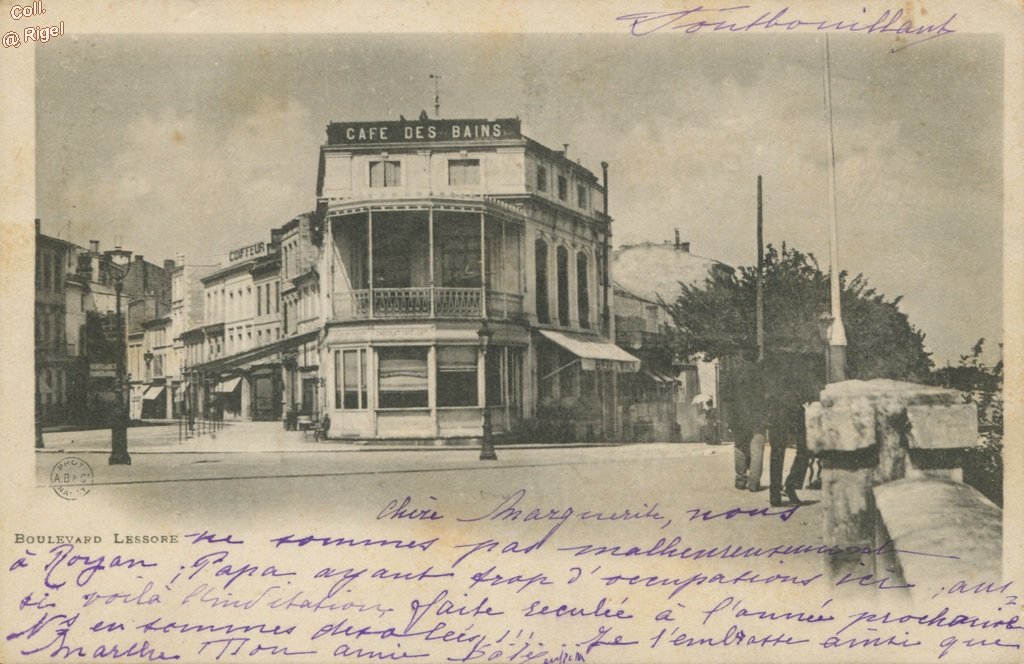 Coll.
@ Rigel
Tontbouillant
CAFE DES BAINS
COIFFEUR
PHOT
A.B & Cie
NANCY
Chère Marguerite, nous
BOULEVARD LESSORE
ne sommes pas malheureusement
à Royan, Papa ayant trop d'occupations ici, aus
si voilà l'invitation faite reculée à l'année prochaine
Ns en sommes désolées!!! Je t'embrasse ainsi que
Marthe Ton amie